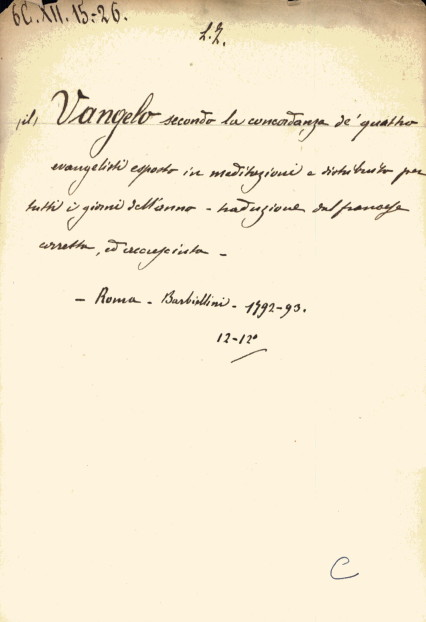 6C. XII. 15-26.
L.Z.
(il) Vangelo secondo la concordanza de' quattro
evangelisti esposto in meditazioni e distribuito per
tutti i giorni dell'anno - traduzione dal francese
corretta, ed accresciuta -
- Roma - Barbiellini - 1792-93.
12-12°
C